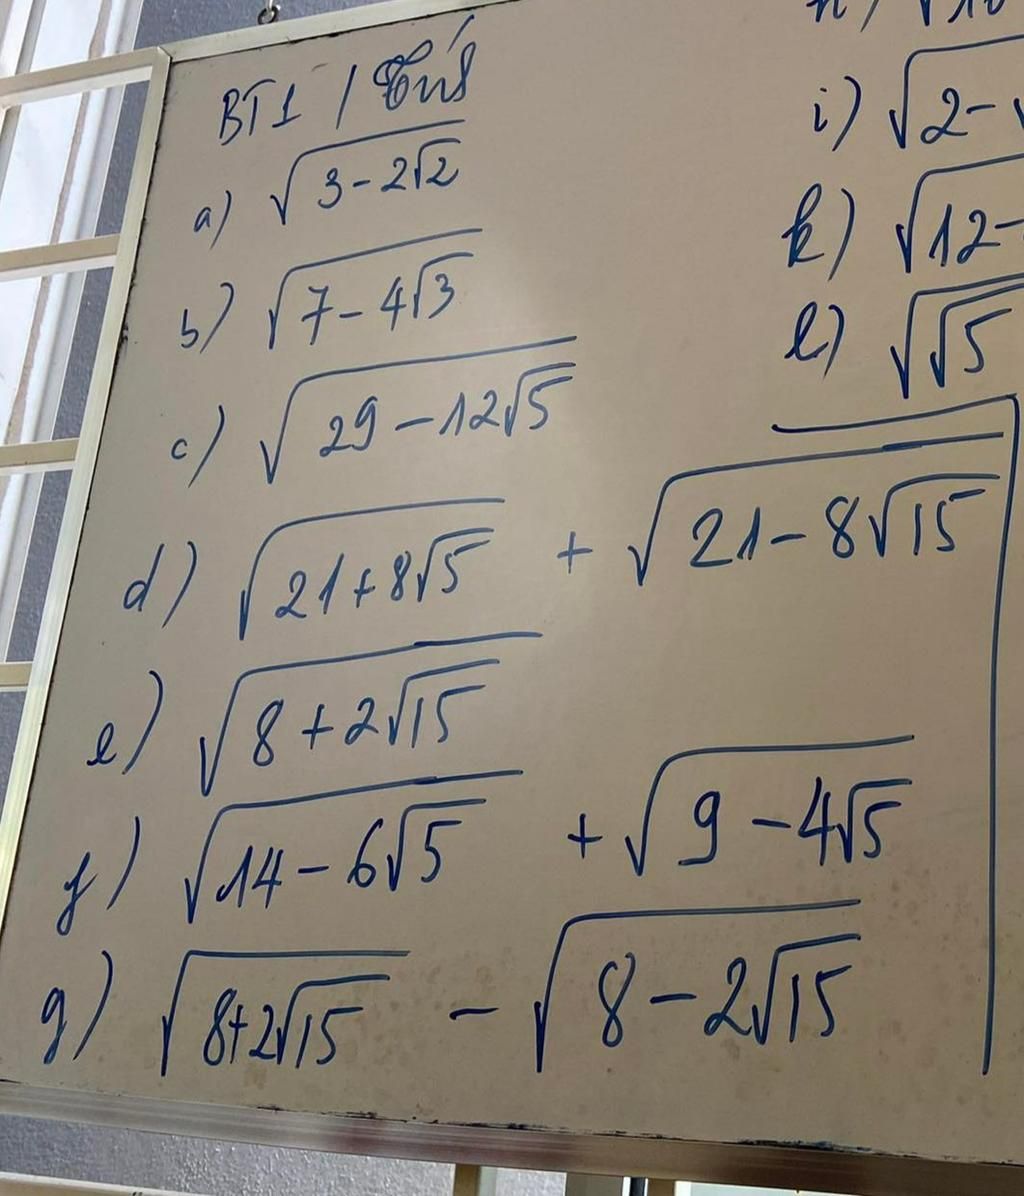 BT1 / Tính
a) √(3-2√2)
b) √(7-4√3)
c) √(29-12√5)
d) √(21+8√5) + √(21-8√15)
e) √(8+2√15)
f) √(14-6√5) + √(9-4√5)
g) √(8+2√15) - √(8-2√15)
i) √(2-√
k) √(12-
l) √(√5